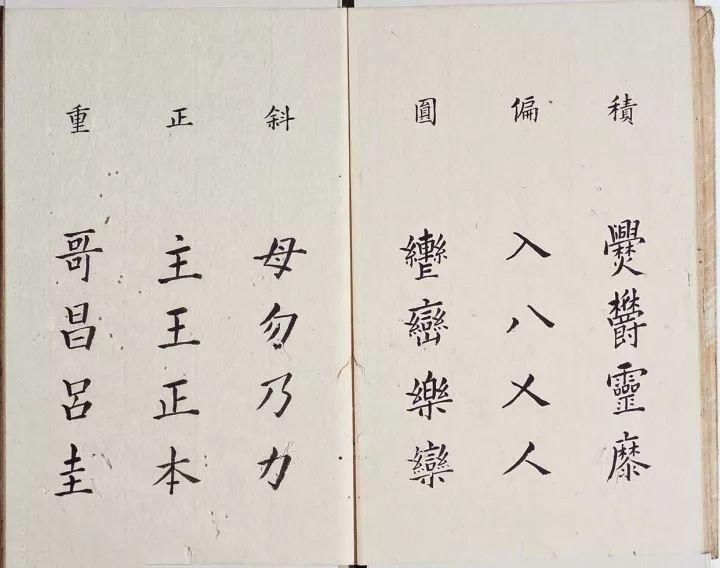 積 爨鬱靈
偏 入八乂人
圓 轡巒樂欒
斜 母勿乃力
正 主王正本
重 哥昌呂圭